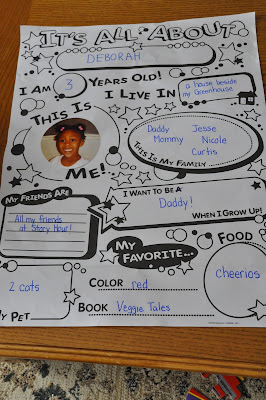 IT'S ALL ABOUT
DEBORAH
I AM 3 YEARS OLD!
I LIVE IN a house beside
my Greenhouse
THIS IS
ME!
Daddy Jesse
Mommy Nicole
Curtis
THIS IS MY FAMILY
MY FRIENDS ARE
All my friends
at Story Hour!
I WANT TO BE A
Daddy!
WHEN I GROW UP!
MY
FAVORITE...
FOOD
Cheerios
COLOR red
BOOK Veggie Tales
2 cats
MY PET